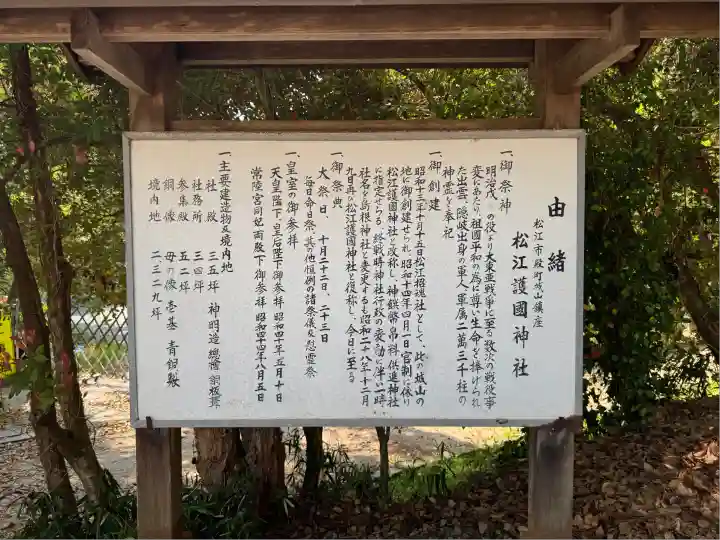 由緒
松江市殿町城山鎮座
松江護國神社
一、御祭神
明治戊の役より大東亜戦争に至る数次の戦役事
変にあたり、祖國平和の為に尊い生命を捧げられ
た出雲、隠岐出身の軍人、軍属二萬三千柱の
神霊を奉祀
一、御創建
昭和十三年十月十五日松江招魂社として、此の城山の
地に御創建せられ、昭和十四年四月一日官制に依り
松江護國神社と改称し、神饌幣帛料供進神社
に指定せらる。終戦時神社行政の変動に伴い一時
社名を島根神社と変更するも昭和二八年十二月
九日再び松江護國神社と復称し、今日に至る
一、御祭典
大祭日、十月二十二日、二十三日
毎日命日祭、其の他恒例の諸祭儀及慰霊祭
一、皇室の御参拝
天皇陛下、皇后陛下御参拝 昭和四十年五月十日
常陸宮同妃両殿下御参拝 昭和四十四年八月五日
一、主要建造物及境内地
社殿 三五坪 神明造 總檜 銅板葺
社務所 三四坪
参集殿 五二坪
銅像 母の像 壱基 青銅製
境内地 二、三二九坪